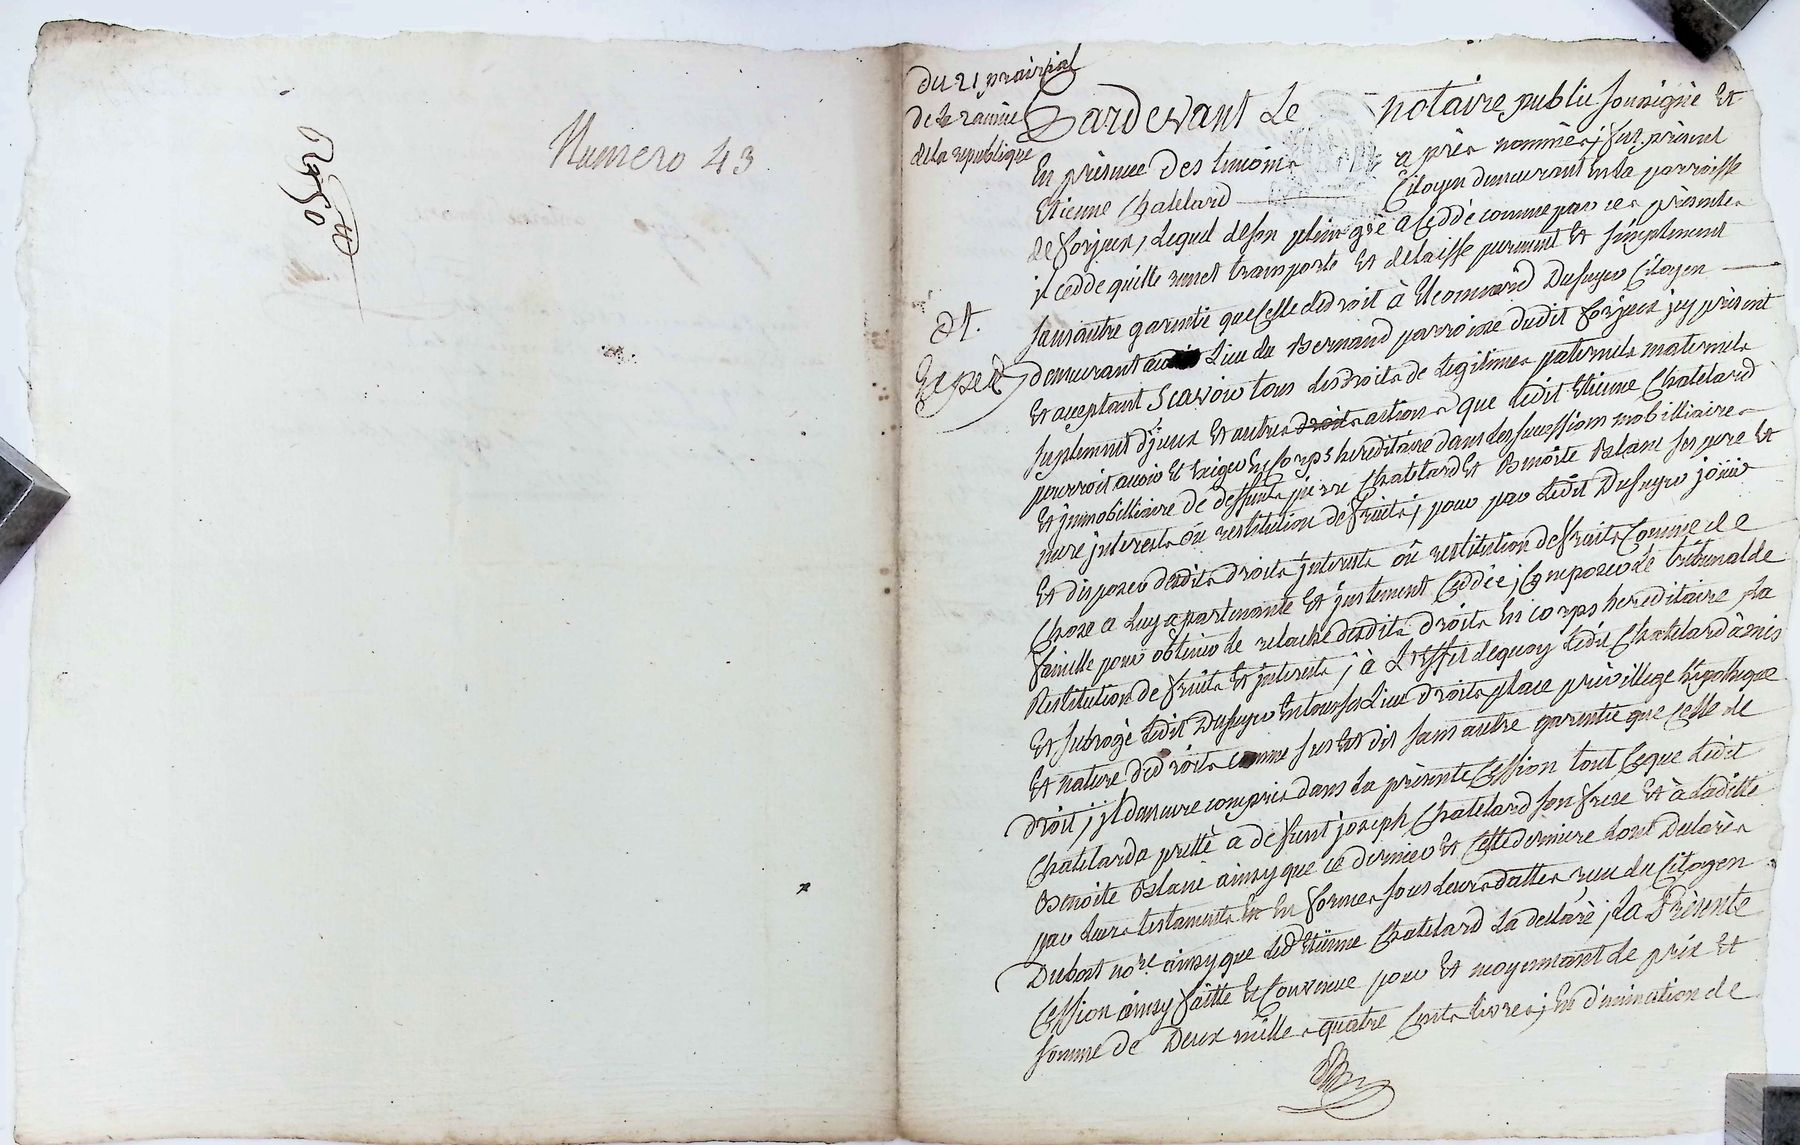 Numero 43
du 21 prairial
de le 2 année
de la republique
Et.
Exped
Pardevant Le notaire public soussigné Et
En présence des temoins après nommés; fut présent
Etienne Chatelard Citoyen demeurant en la parroisse
de forjeux, Lequel de son plein gré a Ceddé comme par ces présentes
il cedde quitte remet transporte Et delaisse purement Et simplement
sans autre garentie que Celle de droit à Dufuyer Citoyen
demeurant au Lieu de Bernand parroisse dudit forjeux icy présent
Et acceptant Scavoir tous les droits de Legitimes paternels maternels
suplement d'jceux Et autres droits actions que Ledit Etienne Chatelard
pourroit avoir Et Exiger En Corps hereditaire dans les successions mobilliaire
Et jmmobilliaire de deffunts pierre Chatelard Et Benoite Blanc ses pere Et
mere jnterests ou restitution de fruits; pour par Ledit Dufuyer jouir
Et disposer desdits droits jnterests ou restitution de fruits Comme de
Chose a Luy apartenante Et justement Ceddée; Composer Le tribunal de
famille pour obtenir Le relache desdits droits En corps hereditaire, La
Restitution de fruits Et jnterests; à L'effet de quoy Ledit Chatelard à mis
Et subrogé Ledit Dufuyer En tous ses Lieu droits place privillege hipotheque
Et nature de droits comme sus Est dit sans autre garentie que Celle de
droit; jl demeure compris dans La présente Cession tout Ce que Ledit
Chatelard a pretté a defunt joseph Chatelard son frere Et à Laditte
Benoite Blanc ainsy que ce dernier Et Cette derniere L'ont Declaré
par Leurs testaments En formes sous Leurs dattes recu du Citoyen
Dubost no.re ainsy que Led. Etienne Chatelard La declaré; La Présente
Cession ainsy faitte Et Convenue pour Et moyennant Le prix Et
somme de Deux milles quatre Cents Livres; En diminution de